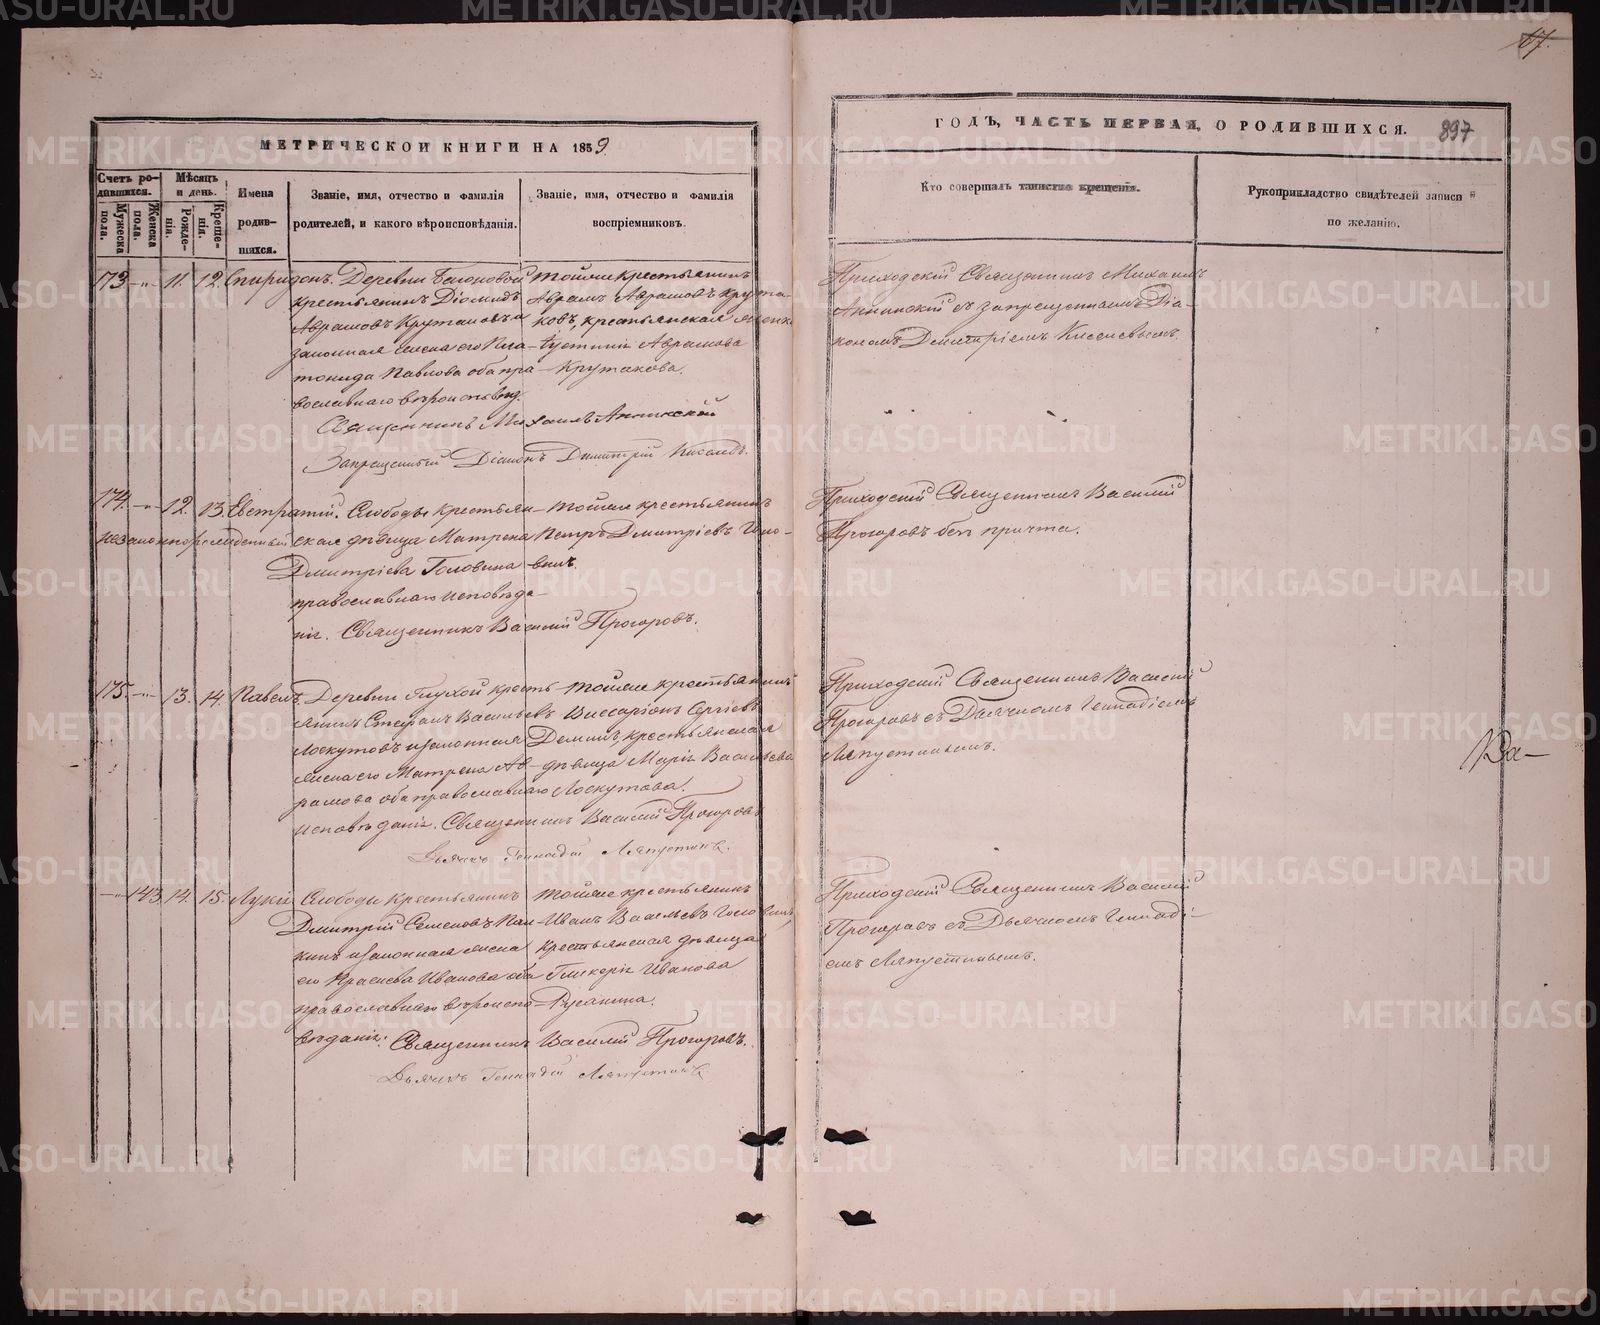 67.
МЕТРИЧЕСКОЙ КНИГИ НА 1859
ГОДЪ, ЧАСТЬ ПЕРВАЯ, О РОДИВШИХСЯ.
897
Счетъ родившихся.
Мужеска пола.
Женска пола.
Мѣсяцъ и день.
Рожденія.
Крещенія.
Имена родившихся.
Званіе, имя, отчество и фамилія родителей, и какого вѣроисповѣданія.
Званіе, имя, отчество и фамилія воспріемниковъ.
Кто совершалъ таинство крещенія.
Рукоприкладство свидѣтелей записи по желанію.
173 -"- 11. 12. Спиридонъ.
Деревни
крестьянинъ Діомидъ
Аврамовъ Крутаковъ и
законная жена его
Павлова оба пра-
вославнаго вѣроисповѣд.
Тойже крестьянинъ
Аврамъ Аврамовъ Крута-
ковъ, крестьянская
Аврамова
Крутакова.
Священникъ Михаилъ Аннинскій
Запрещенный Діаконъ Димитрій Киселевъ.
Приходскій Священникъ Михаилъ
Аннинскій съ запрещеннымъ Діа-
кономъ Димитріемъ Киселевымъ.
174. -"- 12. 13. Евстратій.
незаконнорожденный
Слободы крестьян-
ская дѣвица Матрена
Дмитріева Головина
православнаго исповѣда-
нія.
Тойже крестьянинъ
Петръ Дмитріевъ Голо-
винъ.
Священникъ Василій Прогоровъ.
Приходскій Священникъ Василій
Прогоровъ безъ причта.
175. -"- 13. 14. Павелъ.
Деревни Глухой кресть-
янинъ Стефанъ Васильевъ
Лоскутовъ и законная
жена его Матрена Ав-
рамова оба православнаго
исповѣданія.
Тойже крестьянинъ
Виссаріонъ Сергіевъ
Деминъ, крестьянская
дѣвица Марія Васильева
Лоскутова.
Священникъ Василій Прогоровъ
Дьячекъ Геннадій Ляпустинъ.
Приходскій Священникъ Василій
Прогоровъ съ Дьячкомъ Геннадіемъ
Ляпустинымъ.
Ва-
-"- 143. 14. 15.
Слободы крестьянинъ
Дмитрій Семеновъ Пан-
кинъ и законная жена
его Ивановна оба
православнаго вѣроиспо-
вѣданія.
Тойже крестьянинъ
Иванъ Васильевъ Головинъ,
крестьянская дѣвица
Гликерія Иванова
Русанина.
Священникъ Василій Прогоровъ.
Дьячекъ Геннадій Ляпустинъ
Приходскій Священникъ Василій
Прогоровъ съ Дьячкомъ Геннаді-
емъ Ляпустинымъ.
METRIKI.GASO-URAL.RU